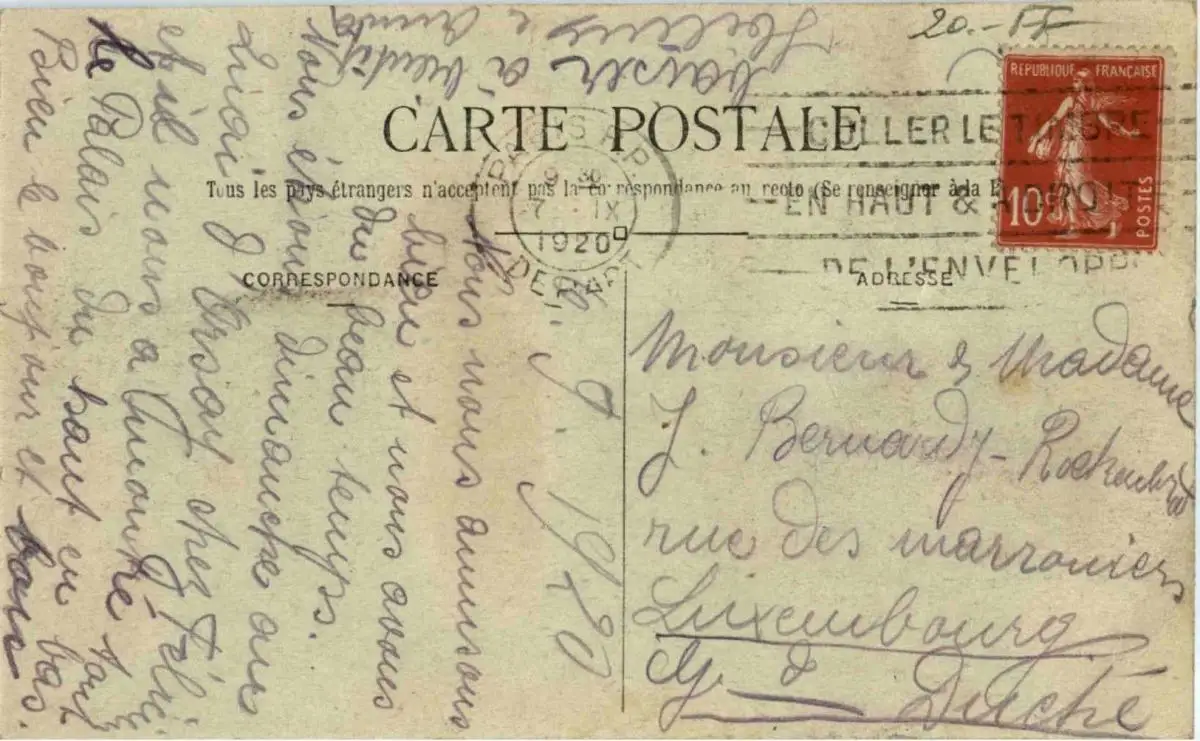 20.-
CARTE POSTALE
Tous les pays étrangers n'acceptent pas la correspondance au recto (Se renseigner à la
REPUBLIQUE FRANÇAISE
10
POSTES
PARIS
9 30
7 IX
1920
DEPART
COLLER LE TIMBRE
EN HAUT & A DROITE
DE L'ENVELOPPE
CORRESPONDANCE
ADRESSE
6. 9. 1920
Nous nous amusons
bien et nous avons
du beau temps.
Nous étions dimanche au
Quai d'Orsay chez Féli
et il nous a montré tout
le Palais du haut en bas.
Bien le bonjour et bons
baisers à bientôt
Monsieur & Madame
J. Bernardy-
rue des marroniers
Luxembourg
G. d Duché